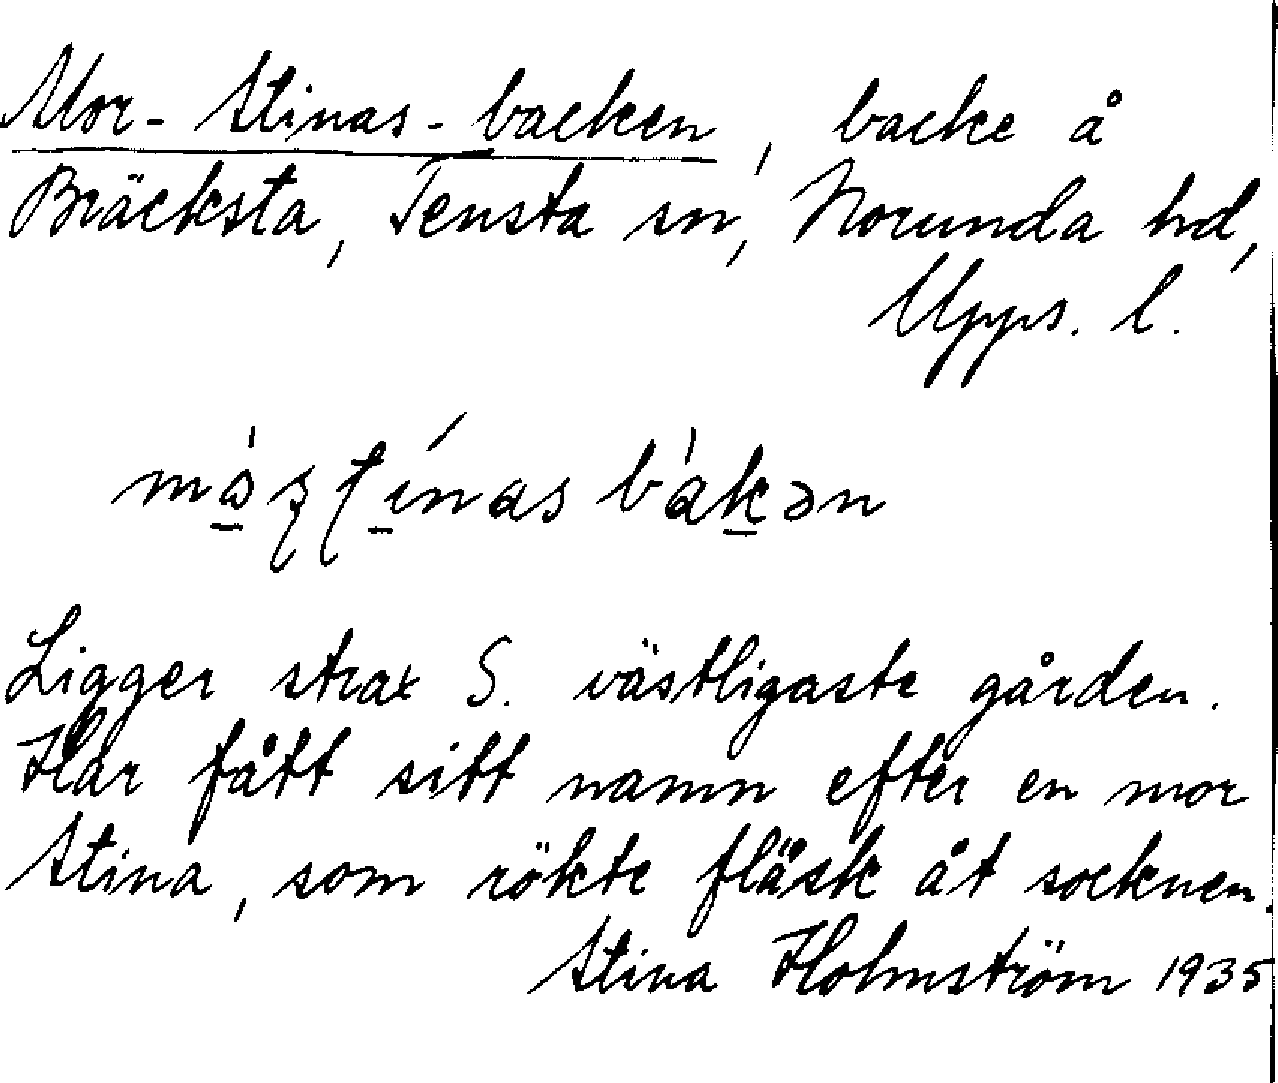 Mor-Stinas-backen, backe å
Bräcksta, Tensta sn, Norunda hd,
Upps. l.
bàkən
Ligger strax S. västligaste gården.
Har fått sitt namn efter en mor
Stina, som rökte fläsk åt socknen.
Stina Holmström 1935